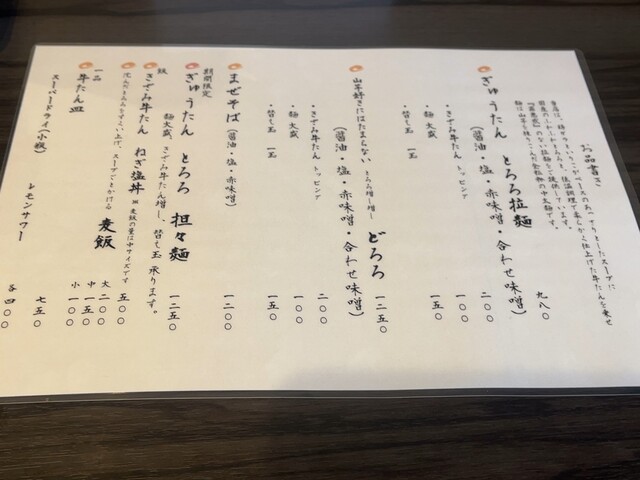 お品書き
ぎゅうたん とろろ拉麺 九八〇
(醤油・塩・赤味噌・合わせ味噌)
・きざみ牛たん トッピング 二〇〇
・麺大盛 一〇〇
・替え玉 一玉 一五〇
山芋好きにはたまらない とろろ増し増し どろろ 一二五〇
(醤油・塩・赤味噌・合わせ味噌)
・きざみ牛たん トッピング 二〇〇
・麺大盛 一〇〇
・替え玉 一玉 一五〇
まぜそば (醤油・塩・赤味噌) 一二〇〇
期間限定
ぎゅうたん とろろ 担々麺 一二五〇
麺大盛、きざみ牛たん増し、替え玉 承ります。
飯
きざみ牛たん ねぎ塩丼 ※麦飯の量は中サイズです 五〇〇
沈んだとろろをすくい上げ、スープごとかける 麦飯 大 二〇〇
中 一五〇
小 一〇〇
一品
牛たん皿 七五〇
スーパードライ(小瓶) レモンサワー 各四〇〇